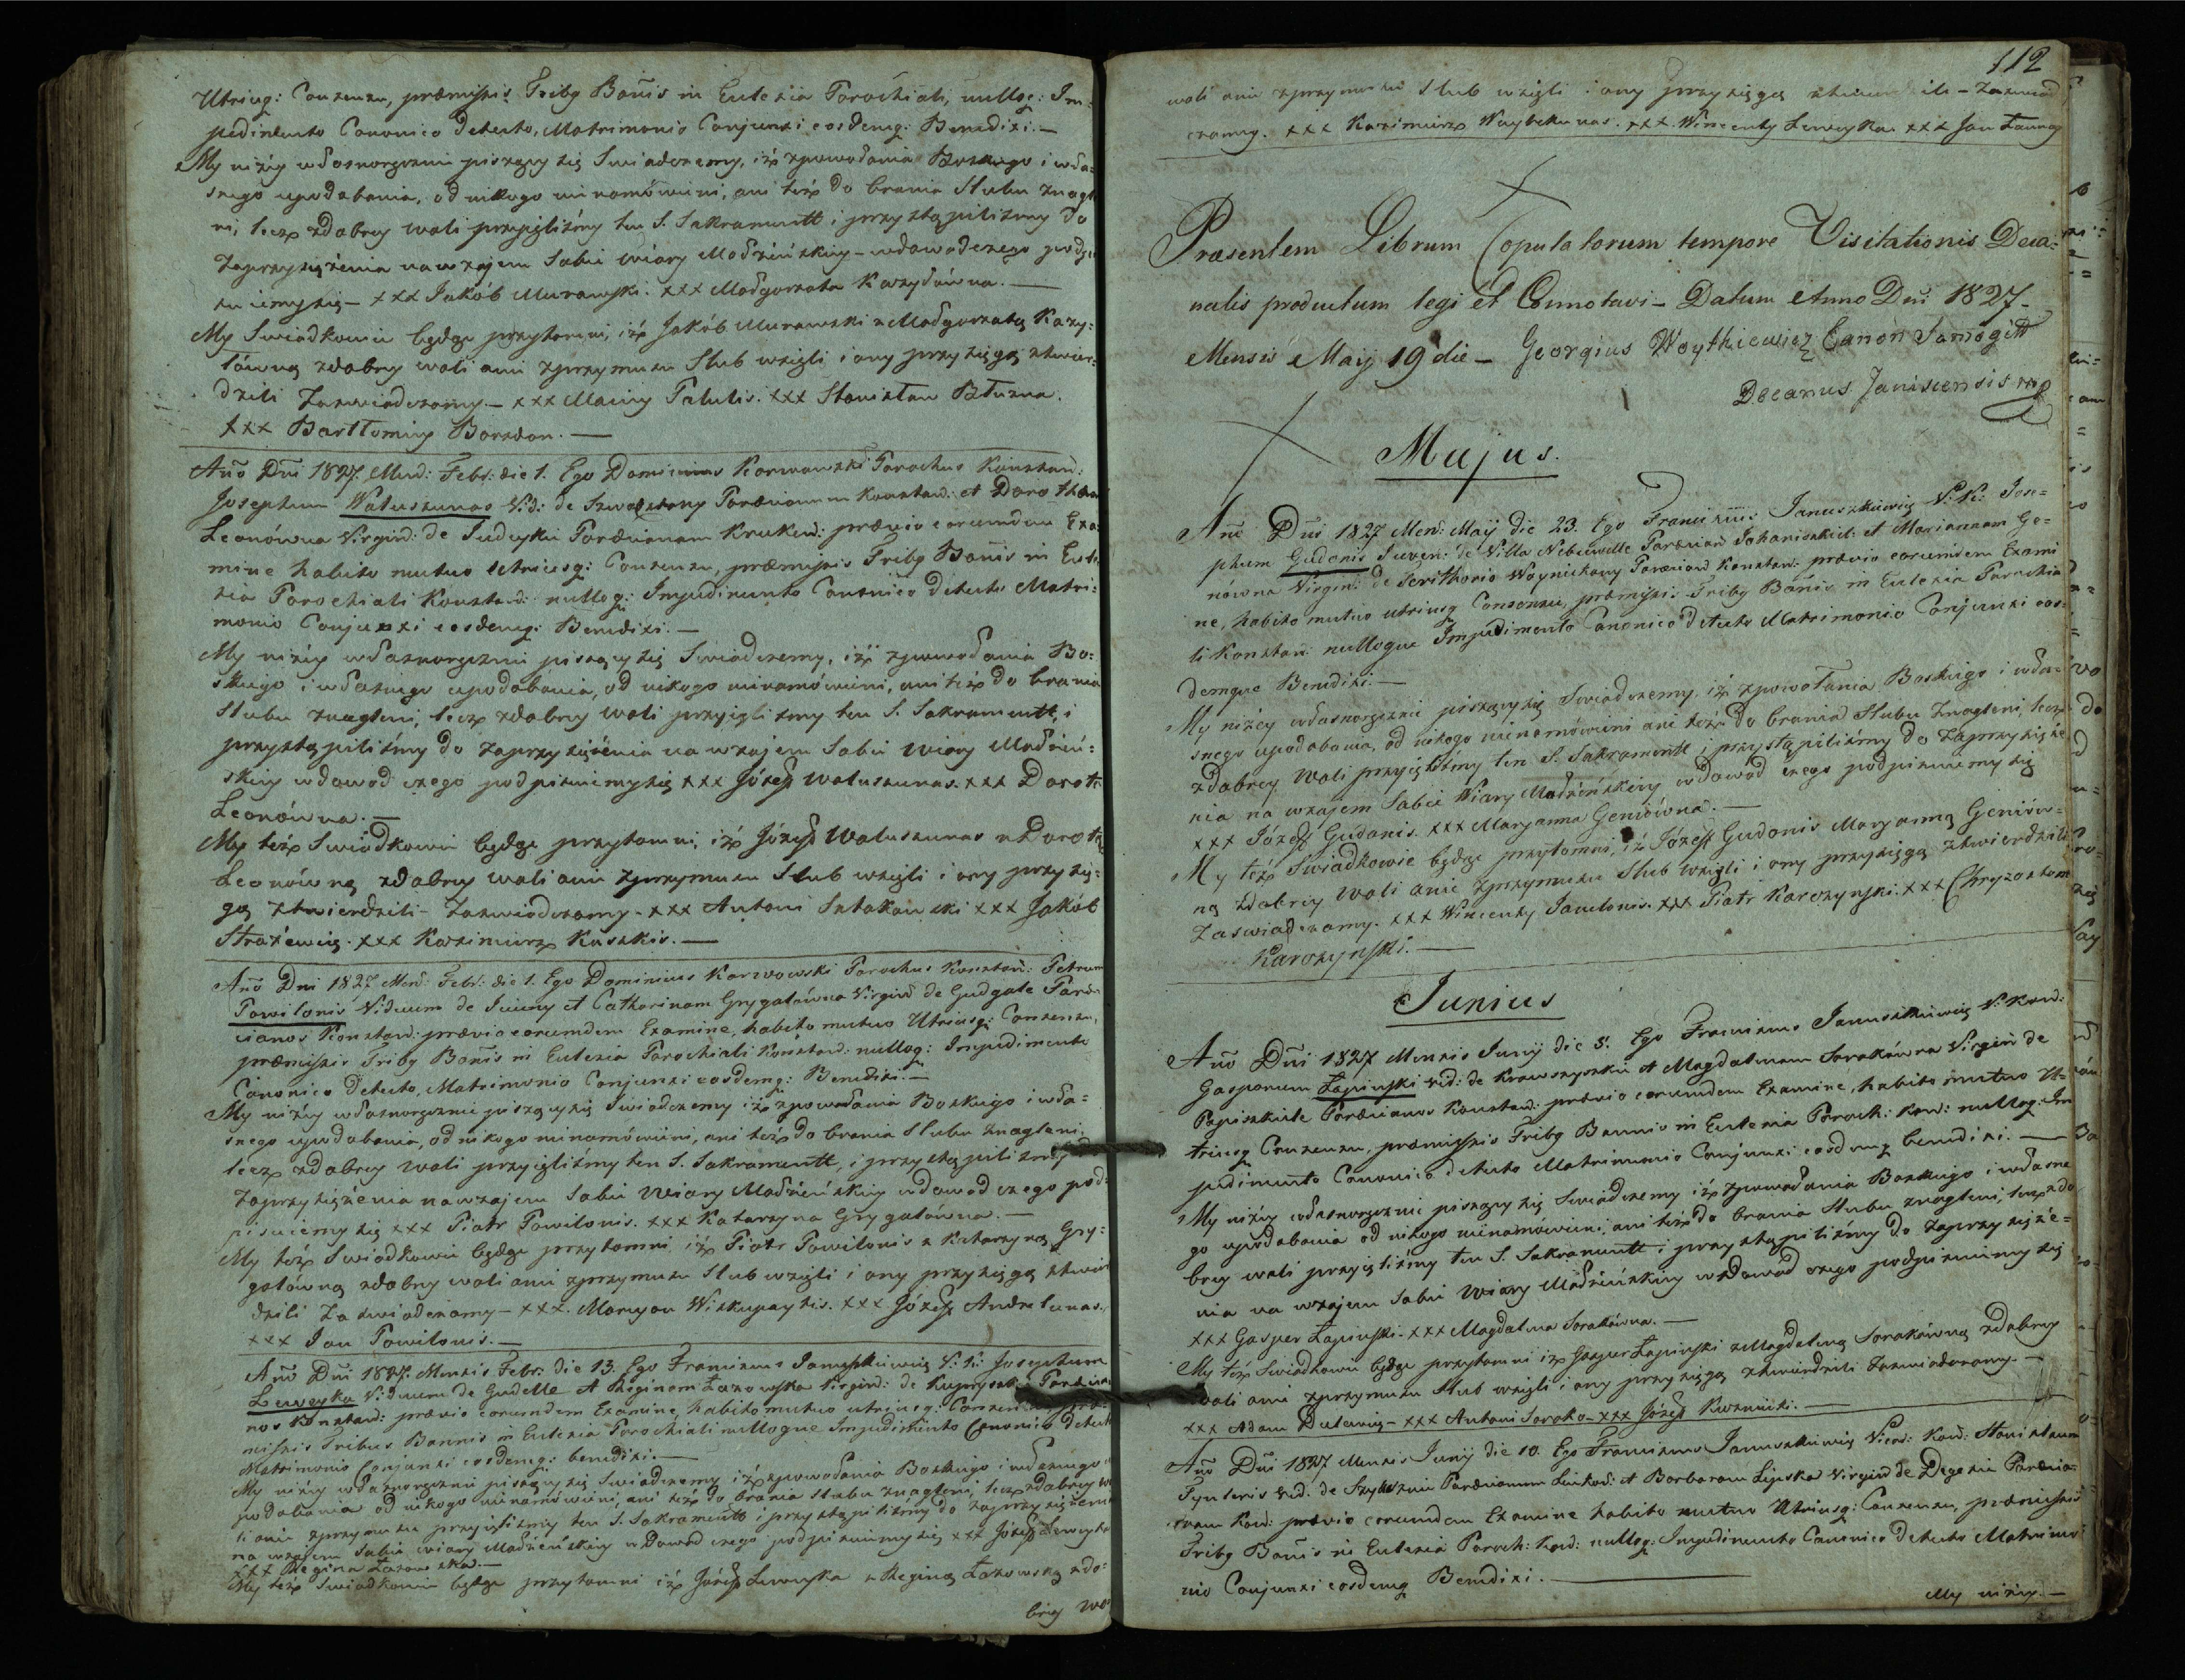 Utriusq: Consensu, præmissis Tribg Bannis in Ecclesia Parochiali, nulloq: Im-
pedimento Canonico detecto, Matrimonio Conjunxi eosdemq: Benedixi.—
My niżey własnoręcznie piszący się Swiadczemy, iż zpowołania Boskiego i wła-
snego upodobania, od nikogo nienamówieni, ani też do brania Slubu znagl
ni, lecz zdobrey woli przyięliśmy ten S. Sakramentt i przystąpiliśmy do
Zaprzysiężenia nawzajem Sobie wiary Małżeńskiey – wdowod czego podpi
suiemy się – xxx Jakób Murawski. xxx Małgorzata Kazy
My Swiadkowie będąc przytomni, iż Jakób Murawski z Małgorzatą Kazy:
zdobrey woli ani zprzymusu Slub wzięli i ony przysięgą ztwier-
dzili Zaswiadczamy.— xxx Maciey xxx Stanisław
xxx Barttomiey Barzdon.—
Año Dñi 1827. Mens: Febr: die 1. Ego Dominicus Karwowski Parochus Konstan:
Josephum Waluszunas Vid: de Parœcianum Konstan: et Doro
Leonówna Virgin: de Parœcianam Kruken: prævio eorumdem Exa
mine habito mutuo utriusq: Consensu, præmissis Tribg Bañis in Eccle
sia Parochiali Konstan: nulloq: Impedimento Canonico detecto Matri:
monio Conjunxi eosdemq: Benedixi.—
My niżey własnoręcznie piszący się Swiadczemy, iż zpowołania Bo:
skiego i własnego upodobania, od nikogo nienamówieni, ani też do brania
Slubu znagleni, lecz zdobrey woli przyięliśmy ten S. Sakramentt, i
przystąpiliśmy do zaprzysiężenia na wzajem Sobie wiary Małżeń:
skiey wdowod czego podpisuiemy się xxx Józef Waluszunas. xxx Dorot
Leonówna.—
My też Swiadkowie będąc przytomni, iż Józef Waluszunas z Dorot
Leonówną zdobrey woli ani zprzymusu Slub wzięli i ony przysię:
gą ztwierdzili – Zaswiadczamy – xxx Antoni xxx Jakób
Strażewicz. xxx Kazimierz Kaszkis.—
Año Dni 1827 Mens: Febr: die 1. Ego Dominicus Karwowski Parochus Konstan: Petrum
Powilonis Viduum de et Catharinam Grygalówna Virgin de Gudgale Parœ
cianos Konstan: prævio eorumdem Examine, habito mutuo Utriusq: Consensu,
præmissis Tribg Bañis in Ecclesia Parochiali Konstan: nulloq: Impedimento
Canonico detecto, Matrimonio Conjunxi eosdemq: Benedixi.—
My niżey własnoręcznie piszący się Swiadczemy iż zpowołania Boskiego i wła-
snego upodobania, od nikogo nienamówieni, ani też do brania Slubu znagleni,
lecz zdobrey woli przyięliśmy ten S. Sakramentt, i przystąpiliśmy
Zaprzysiężenia nawzajem Sobie Wiary Małżeńskiey wdowod czego pod:
pisuiemy się xxx Piotr Powilonis. xxx Katarzyna Grygalówna.—
My też Swiadkowie będąc przytomni iż Piotr Powilonis z Katarzyną Gry:
galówną zdobrey woli ani zprzymusu Slub wzięli i ony przysięgą ztwier
dzili Zaswiadczamy – xxx. Maryan xxx Józef
xxx Jan Powilonis.—
Año Dñi 1827. Mensis Febr: die 13. Ego Franciscus Januszkiewicz V: K: Josephum
Leweyka Viduum de Gudelle et Reginam Łazowska Virgin: de Parœcia
nos Konstan: prævio eorumdem Examine, habito mutuo utriusq: Consensu, præ
missis Tribus Bannis in Ecclesia Parochiali nulloque Impedimento Canonico detect
Matrimonio Conjunxi eosdemq: benedixi.—
My niżey własnoręcznie piszący się Swiadczemy iż zpowołania Boskiego i własnego u
podobania od nikogo nienamówieni, ani też do brania Slubu znagleni, lecz zdobrey wo
li ani zprzymusu przyięliśmy ten S. Sakramentt i przystąpiliśmy do zaprzysiężenia
na wzajem Sobie wiary Małżeńskiey wdowod czego podpisuiemy się xxx Józef Leweyka
xxx Regina Łazowska.—
My też Swiadkowie będąc przytomni iż Józef Leweyka z Reginą Łazowską zdo:
brey wo
112
woli ani zprzymusu Slub wzięli i ony przysięgą ztwierdzili – Zaswiad
czamy. xxx Kazimierz xxx. Wincenty Leweyka xxx Jan
Præsentem Librum Copulatorum tempore Visitationis Deca:
nalis productum legi et Connotavi – Datum Anno Dni 1827–
Mensis Maij 19 die – Georgius Woythiewicz Canon Samogitt
Decanus Janiscensis mp
Majus.
Año Dñi 1827 Mens: Maij die 23. Ego Franciscus Januszkiewicz V: K: Jose=
phum Gudonis Juven: de Villa Parœcian Johaniszkiel: et Mariannam Ge=
niówna Virgin: de Territhorio Woyniszkany Parœcian Konstan: prævio eorumdem Exami
ne, habito mutuo utriusq Consensu, præmissis Tribg Bañis in Ecclesia Parochia
li Konstan: nulloque Impedimento Canonico detecto Matrimonio Conjunxi eos:
demque Benedixi.—
My niżey własnoręcznie piszący się Swiadczemy, iż zpowołania Boskiego i wła-
śnego upodobania, od nikogo nienamówieni ani też do brania Slubu Znagleni, lecz
zdobrey Woli przyięliśmy ten S. Sakramentt i przystąpiliśmy do Zaprzysięże
nia na wzajem Sobie Wiary Małżeńskiey wdowod czego podpisuiemy się
xxx Józef Gudonis. xxx Maryanna Geniówna.—
My też Swiadkowie będąc przytomni, iż Józef Gudonis Maryanną Geniów-
ną zdobrey Woli anie zprzymusu Slub wzięli i ony przysięgą ztwierdzili
Zaswiadczamy. xxx Wincenty xxx Piotr Karczynski. xxx Chryzostom
Karczynski.—
Junius
Año Dñi 1827 Mensis Junij die 5. Ego Franciscus Januszkiewicz V: Kon:
Gasparum Łapinski Vid: de et Magdalenam Sorakówna Virgin de
Papiszkiele Parœcianos Konstan: prævio eorumdem Examine, habito mutuo U-
triusq Consensu, præmissis Tribg Bannis in Ecclesia Paroch: Kon: nulloq: Im
pedimento Canonico detecto Matrimonio Conjunxi eosdemq benedixi.—
My niżey własnoręcznie piszący się Swiadczemy iż zpowołania Boskiego i własne
go upodobania od nikogo nienamówieni; ani też do brania Slubu znagleni, lecz zdo
brey woli przyięliśmy ten S. Sakramentt i przystąpiliśmy do zaprzysięże=
nia na wzajem Sobie Wiary Małżeńskiey wdowod czego podpisuiemy się
xxx Gasper Łapinski. xxx Magdalena Sorakówna.—
My też Swiadkowie będąc przytomni iż Gasper Łapinski z Magdaleną Sorakówną zdobrey
woli ani zprzymusu Slub wzięli i ony przysięgą ztwierdzili Zaswiadczamy.—
xxx Adam – xxx Antoni Sorako – xxx Józef Kuzmicki.—
Año Dñi 1827 Mensis Junij die 10. Ego Franciscus Januszkiewicz Vicar: Kon: Stanislaum
Vid. de Parœcianum Linkov: et Barbaram Lipska Virgin de Parœcia:
nam Kon: prævio eorumdem Examine habito mutuo Utriusq: Consensu, præmissis
Tribg Bañis in Ecclesia Paroch: Kon: nulloq: Impedimento Canonico detecto Matrimo
nio Conjunxi eosdemq Benedixi.—
My niżey.—